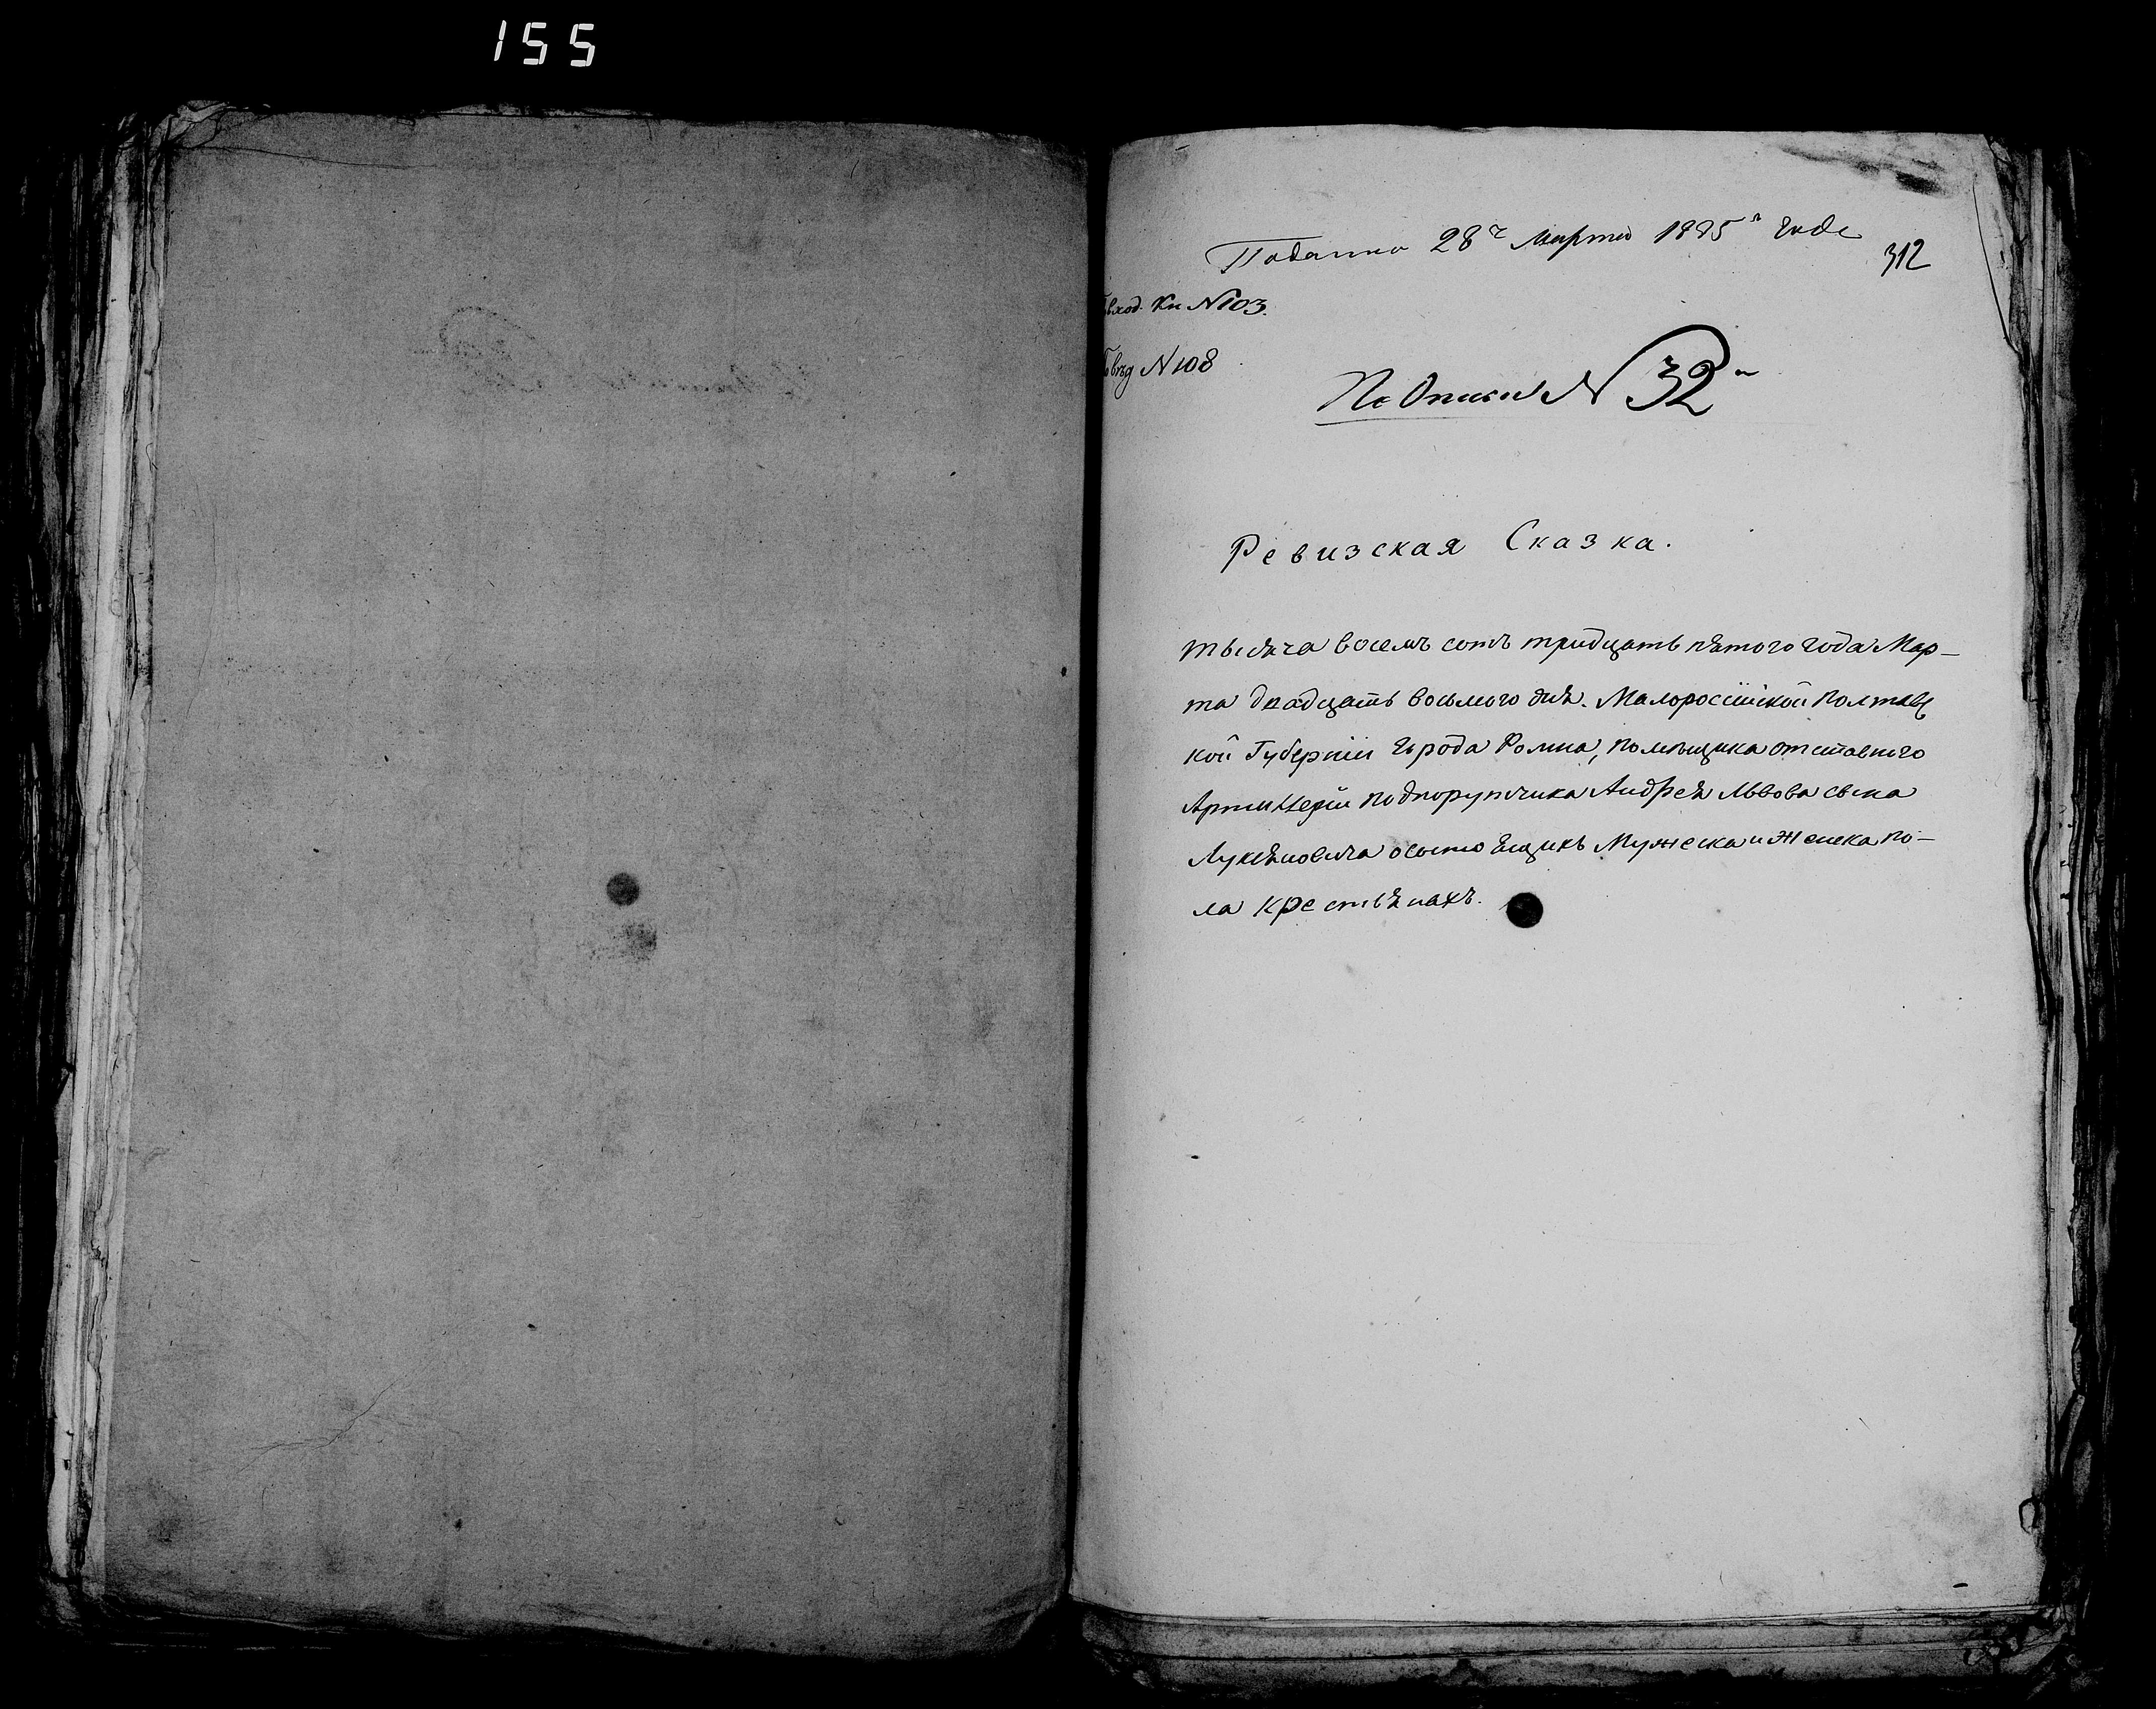 155
Поданно 28г Марта 1835г Года
312
вход. Кн N103.
вѣд N108
По Описи N 32й
Ревизская Сказка.
тысяча восемъ сотъ тридцать пятого года Мар-
та двадцать восьмого дня. Малоросiйской Полтавс
кой Губернiи города Ромна, помѣщика отставного
Артиллерiи подпорутчика Андрея Львова сына
Лукяновича осьтоящихъ Мужеска и Женска по-
ла крестьянахъ.